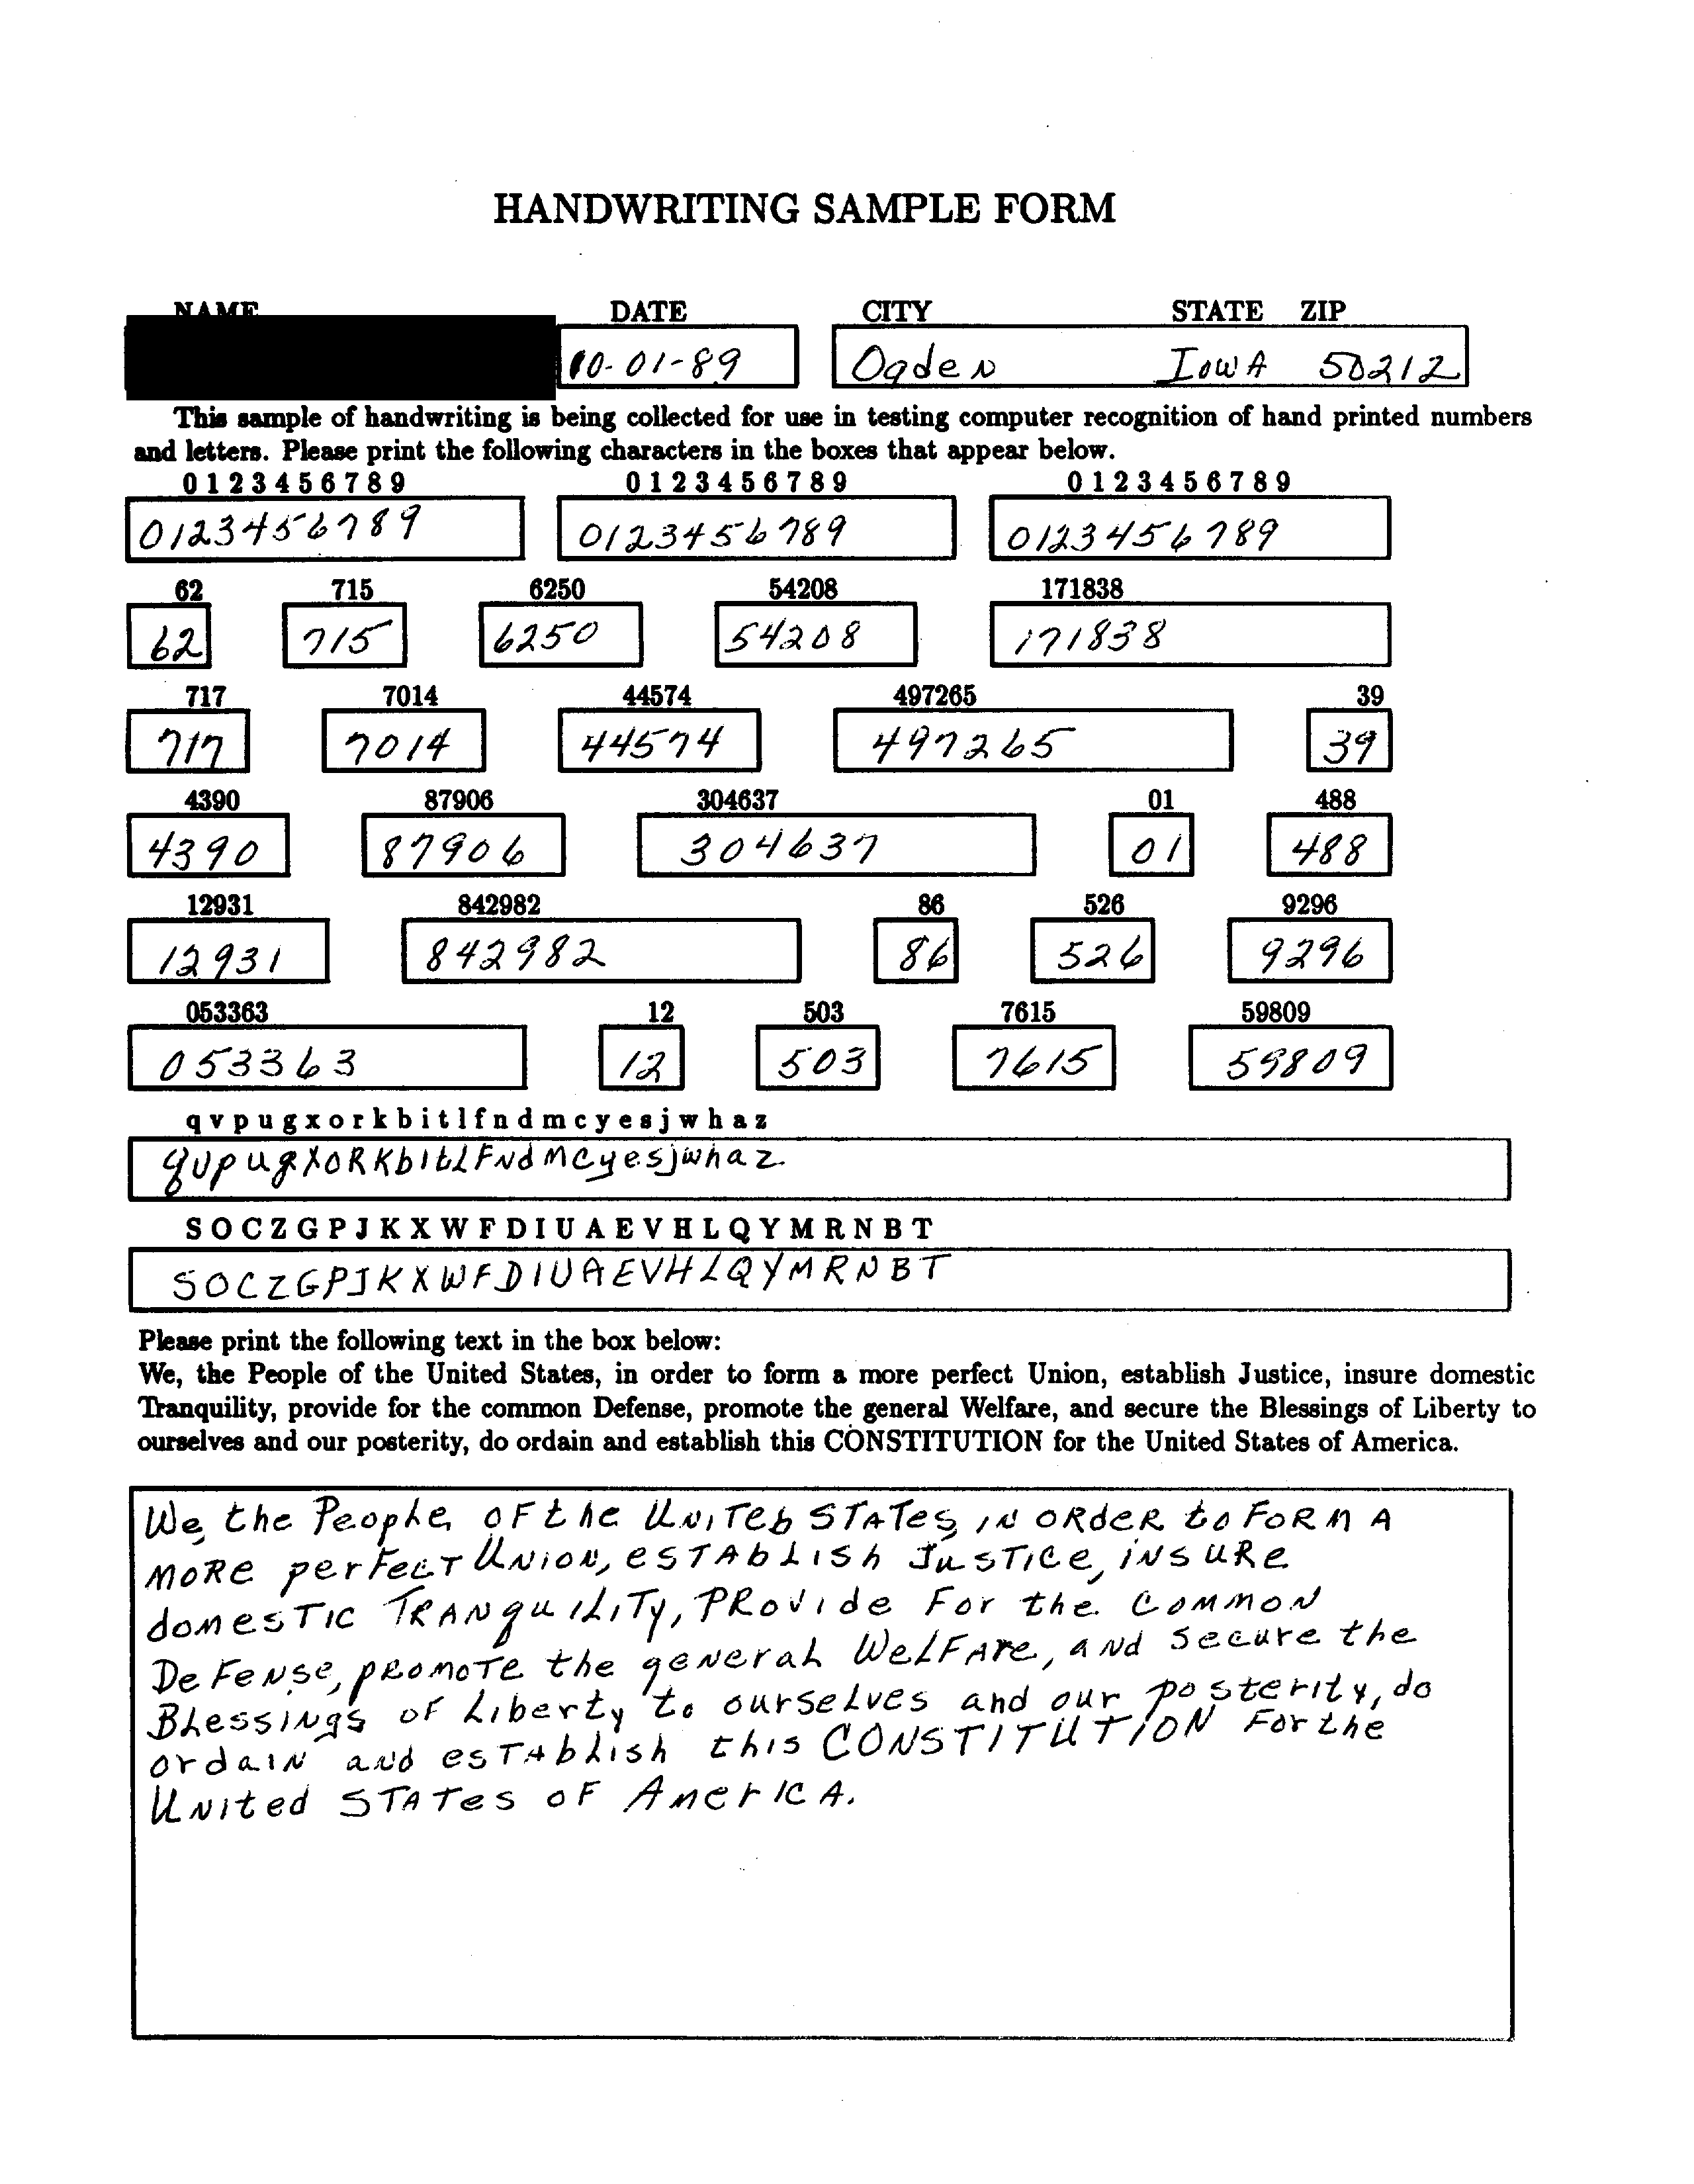 HANDWRITING SAMPLE FORM
NAME DATE CITY STATE ZIP
10-01-89 Ogden Iowa 50212
This sample of handwriting is being collected for use in testing computer recognition of hand printed numbers
and letters. Please print the following characters in the boxes that appear below.
0 1 2 3 4 5 6 7 8 9 0 1 2 3 4 5 6 7 8 9 0 1 2 3 4 5 6 7 8 9
0123456789 0123456789 0123456789
62 715 6250 54208 171838
62 715 6250 54208 171838
717 7014 44574 497265 39
717 7014 44574 497265 39
4390 87906 304637 01 488
4390 87906 304637 01 488
12931 842982 86 526 9296
12931 842982 86 526 9296
053363 12 503 7615 59809
053363 12 503 7615 59809
q v p u g x o r k b i t l f n d m c y e s j w h a z
qvpugxoRKbitLFNdmcyesjwhaz
S O C Z G P J K X W F D I U A E V H L Q Y M R N B T
SOCZGPJKXWFDIUAEVHLQYMRNBT
Please print the following text in the box below:
We, the People of the United States, in order to form a more perfect Union, establish Justice, insure domestic
Tranquility, provide for the common Defense, promote the general Welfare, and secure the Blessings of Liberty to
ourselves and our posterity, do ordain and establish this CONSTITUTION for the United States of America.
We, the People, of the United States, in order to form a
more perfect Union, establish Justice, insure
domestic Tranquility, provide for the common
Defense, promote the general Welfare, and secure the
Blessings of Liberty to ourselves and our posterity, do
ordain and establish this CONSTITUTION for the
United States of America.